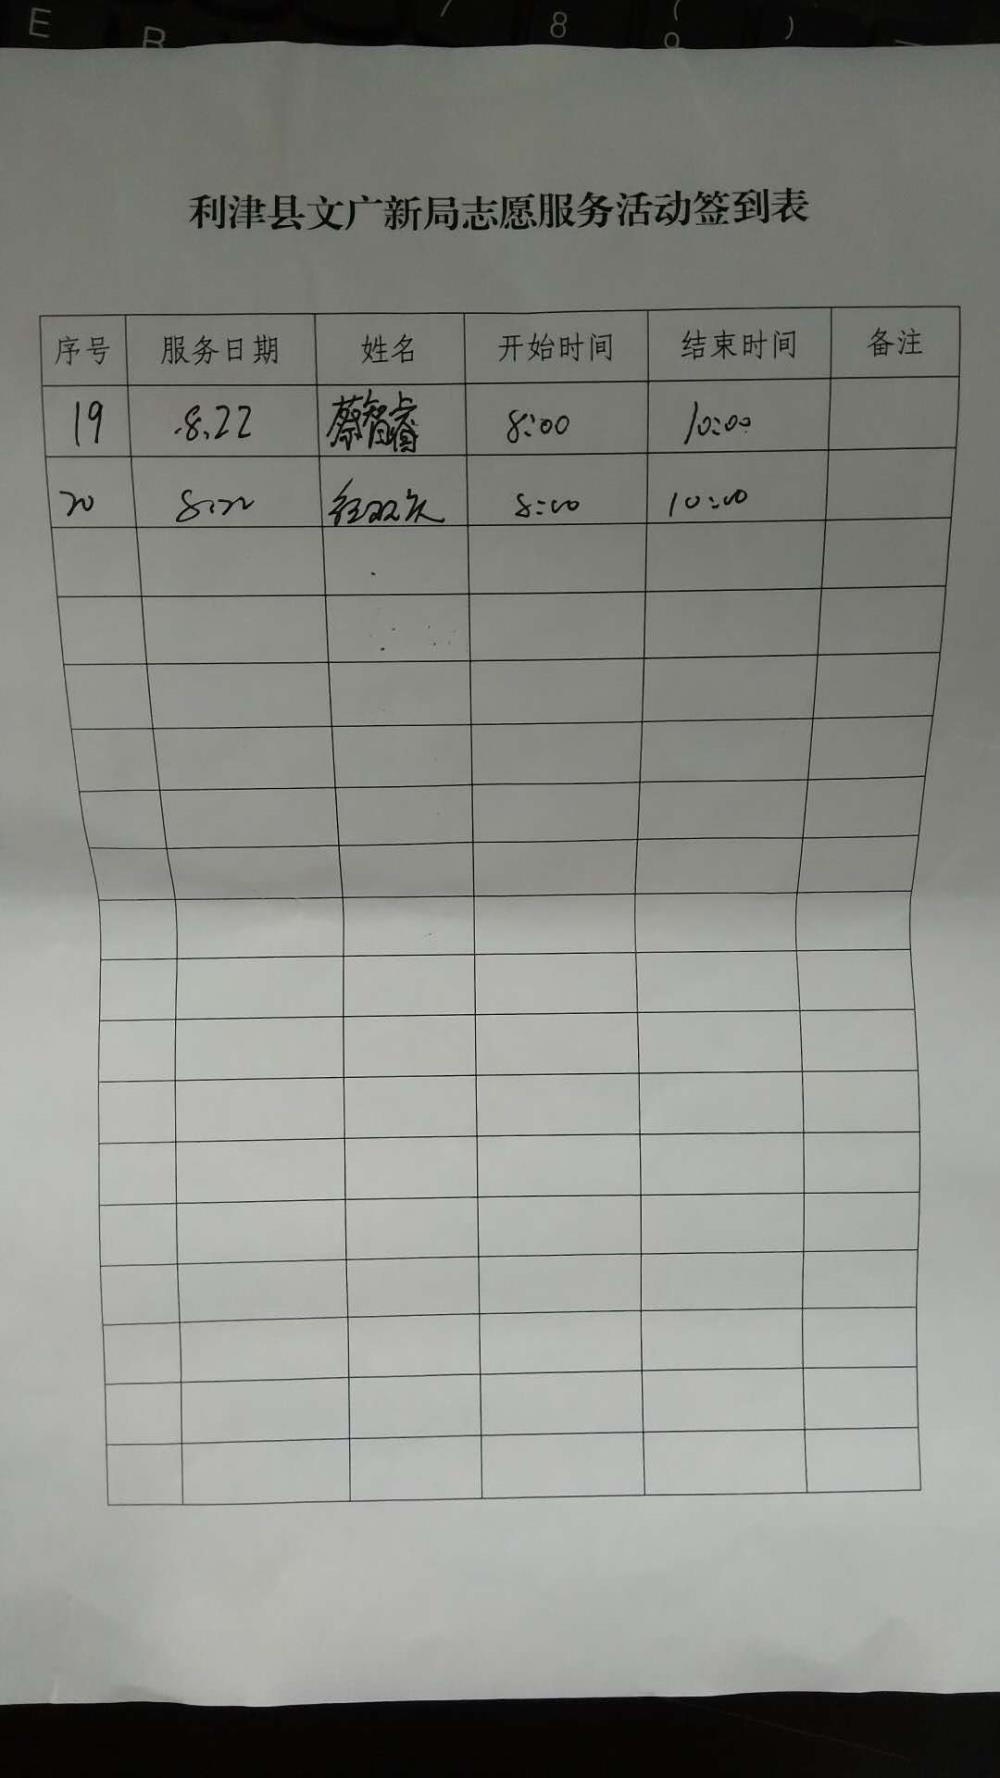 E R 7 8 ( 9 )
利津县文广新局志愿服务活动签到表
序号 服务日期 姓名 开始时间 结束时间 备注
19 .8.22 蔡智睿 8:00 10:00
20 8.22 8:00 10:00